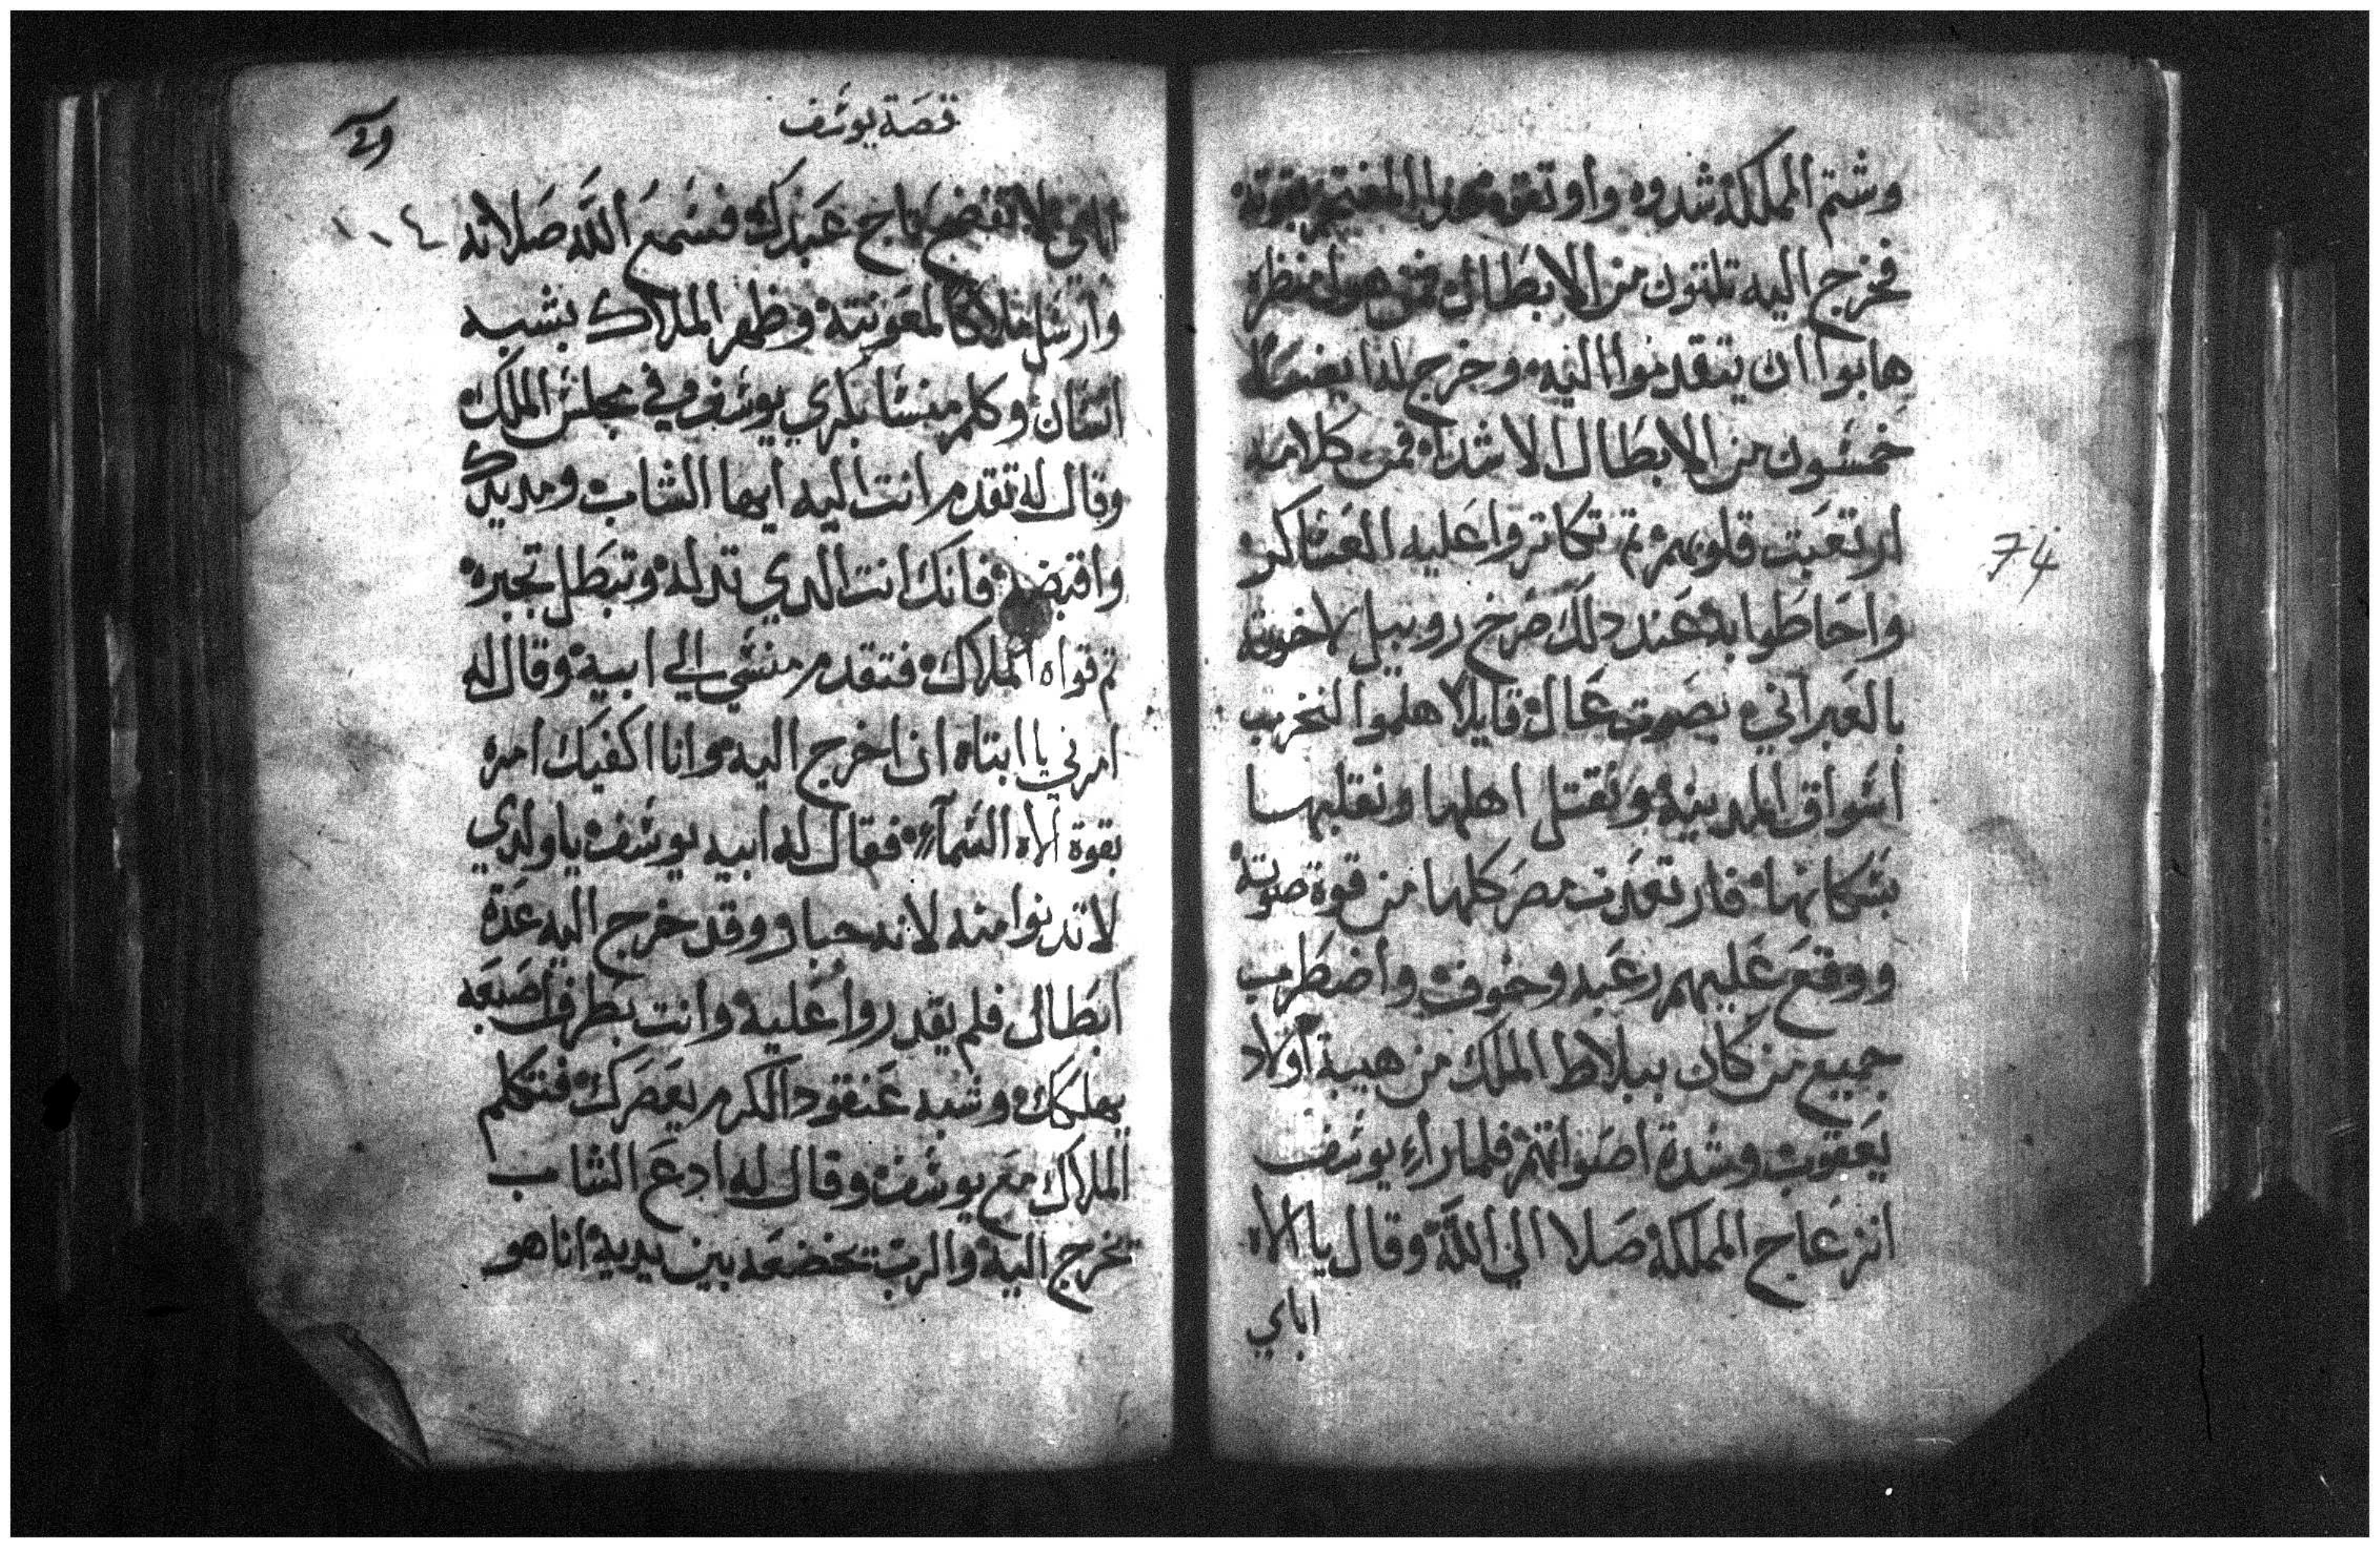 وشتم المملكة شدوه واوتقوه هدا المفتخر بقوته
فخرج اليه تلتون من الابطال فمن هول منظره
هابوا ان يتقدموا اليه وخرج لدا يضا
خمسون من الابطال الاشدا فمن كلامه
ارتعبت قلوبهم تم تكاتروا عليه العساكر
واحاطوا به عند دلك صرخ روبيل لاخوته
بالعبراني بصوت عال قايلا هلموا لنخرب
اسواق المدينه ونقتل اهلها ونقلبها
بسكانها فارتعدت مصر كلها من قوة صوته
ووقع عليهم رعبه وخوف واضطرب
جميع من كان ببلاط الملك من هيبة اولاد
يعقوب وشدة اصواتهم فلما راء يوسف
انزعاج المملكة صلا الي الله وقال يا الاه
اباي
قصة يوسف
اباي لا تفضح تاج عبدك فسمع الله صلاته
وارسل ملاكا لمعونته وظهر الملاك بشبه
انسان وكلم منسا بكري يوسف في مجلس الملك
وقال له تقدم انت اليه ايها الشاب ومد يدك
واقبضه فانك انت الدي تدله وتبطل تجبره
تم قواه الملاك فتقدم منسي الي ابيه وقال له
امرني يا ابتاه ان اخرج اليه وانا اكفيك امره
بقوة الاه السماء فقال له ابيه يوسف يا ولدي
لا تدنوا منه لانه جبار وقد خرج اليه عدة
ابطال فلم يقدروا عليه وانت بطرف اصبعه
يهلكك وشبه عنقود الكرم يعصرك فتكلم
الملاك مع يوسف وقال له ادع الشاب
يخرج اليه والرب يخضعه بين يديه انا هو
١٠٤
74